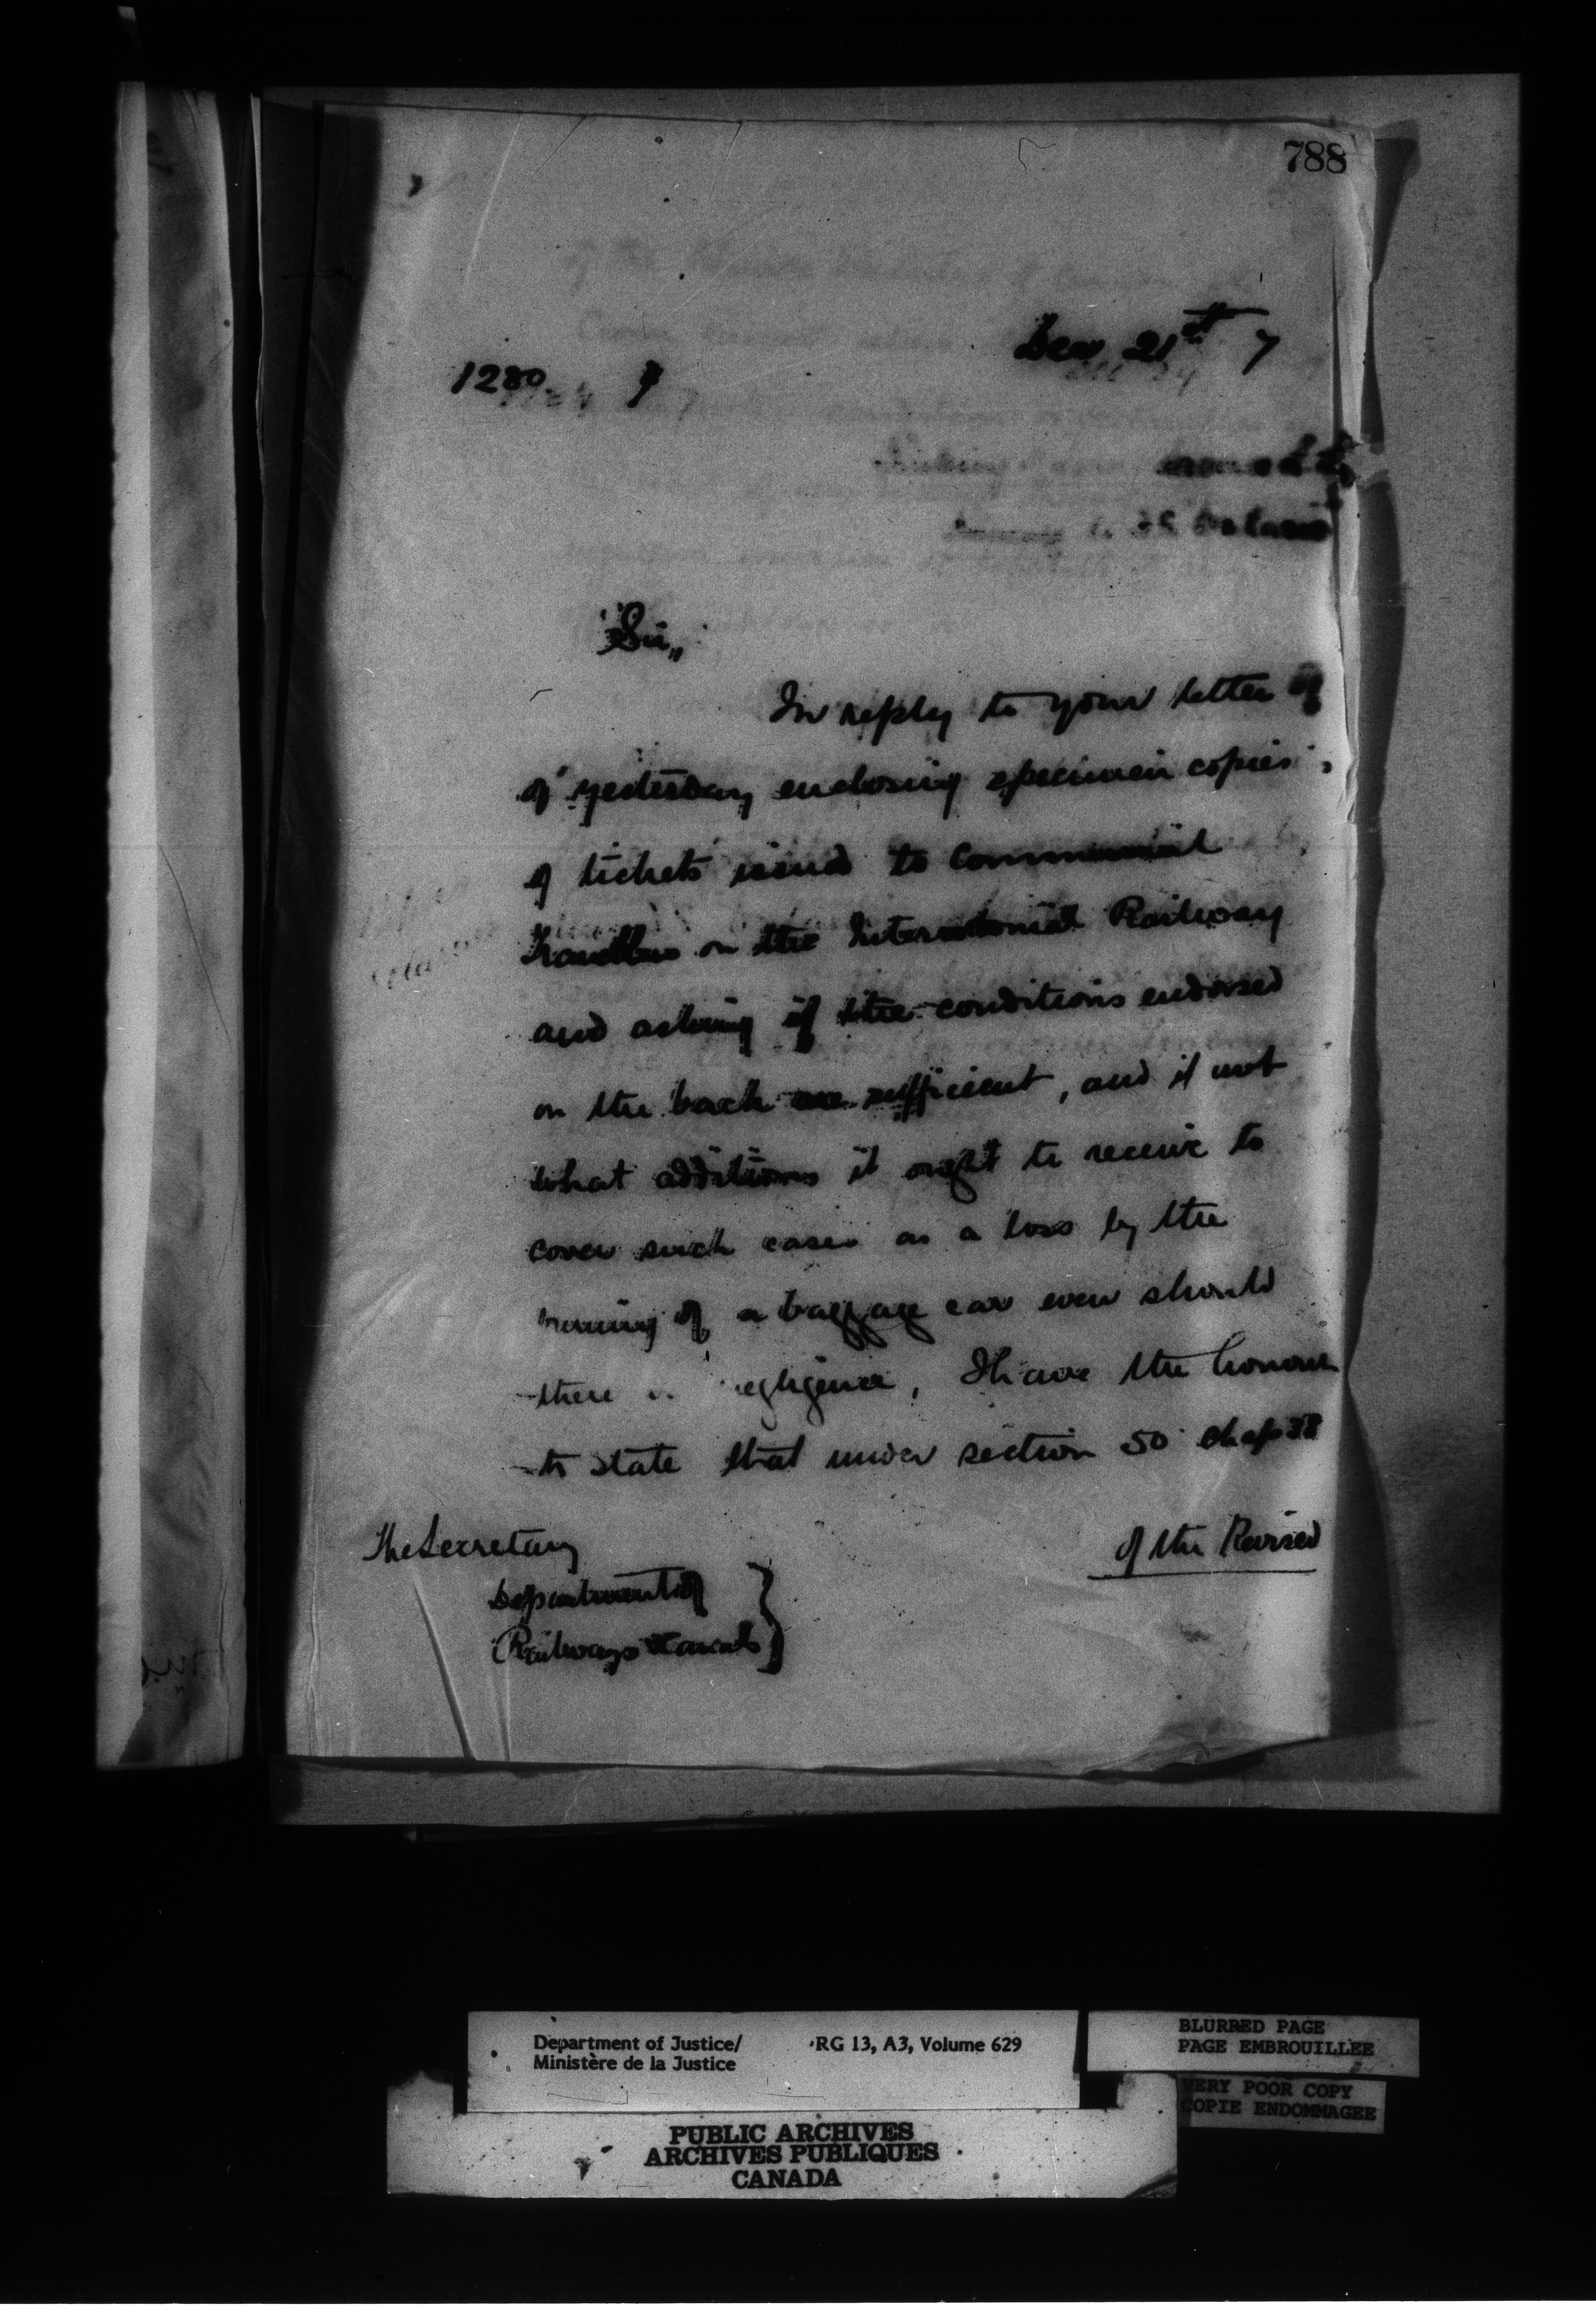 788
Dec 21st 7
1280 7
Sir,,
In reply to your letter of
of yesterday enclosing specimen copies
of tickets issued to Commercial
Travellers on the Intercolonial Railway
and asking if the conditions endorsed
on the back are sufficient, and if not
what additions it ought to receive to
cover such cases as a loss by the
burning of a baggage car even should
there negligence, I have the honour
to state that under section 50 chap 38
of the Revised
The Secretary
Department of
Railways & Canals
Department of Justice/ RG 13, A3, Volume 629
Ministère de la Justice
BLURRED PAGE
PAGE EMBROUILLEE
VERY POOR COPY
COPIE ENDOMMAGEE
PUBLIC ARCHIVES
ARCHIVES PUBLIQUES
CANADA